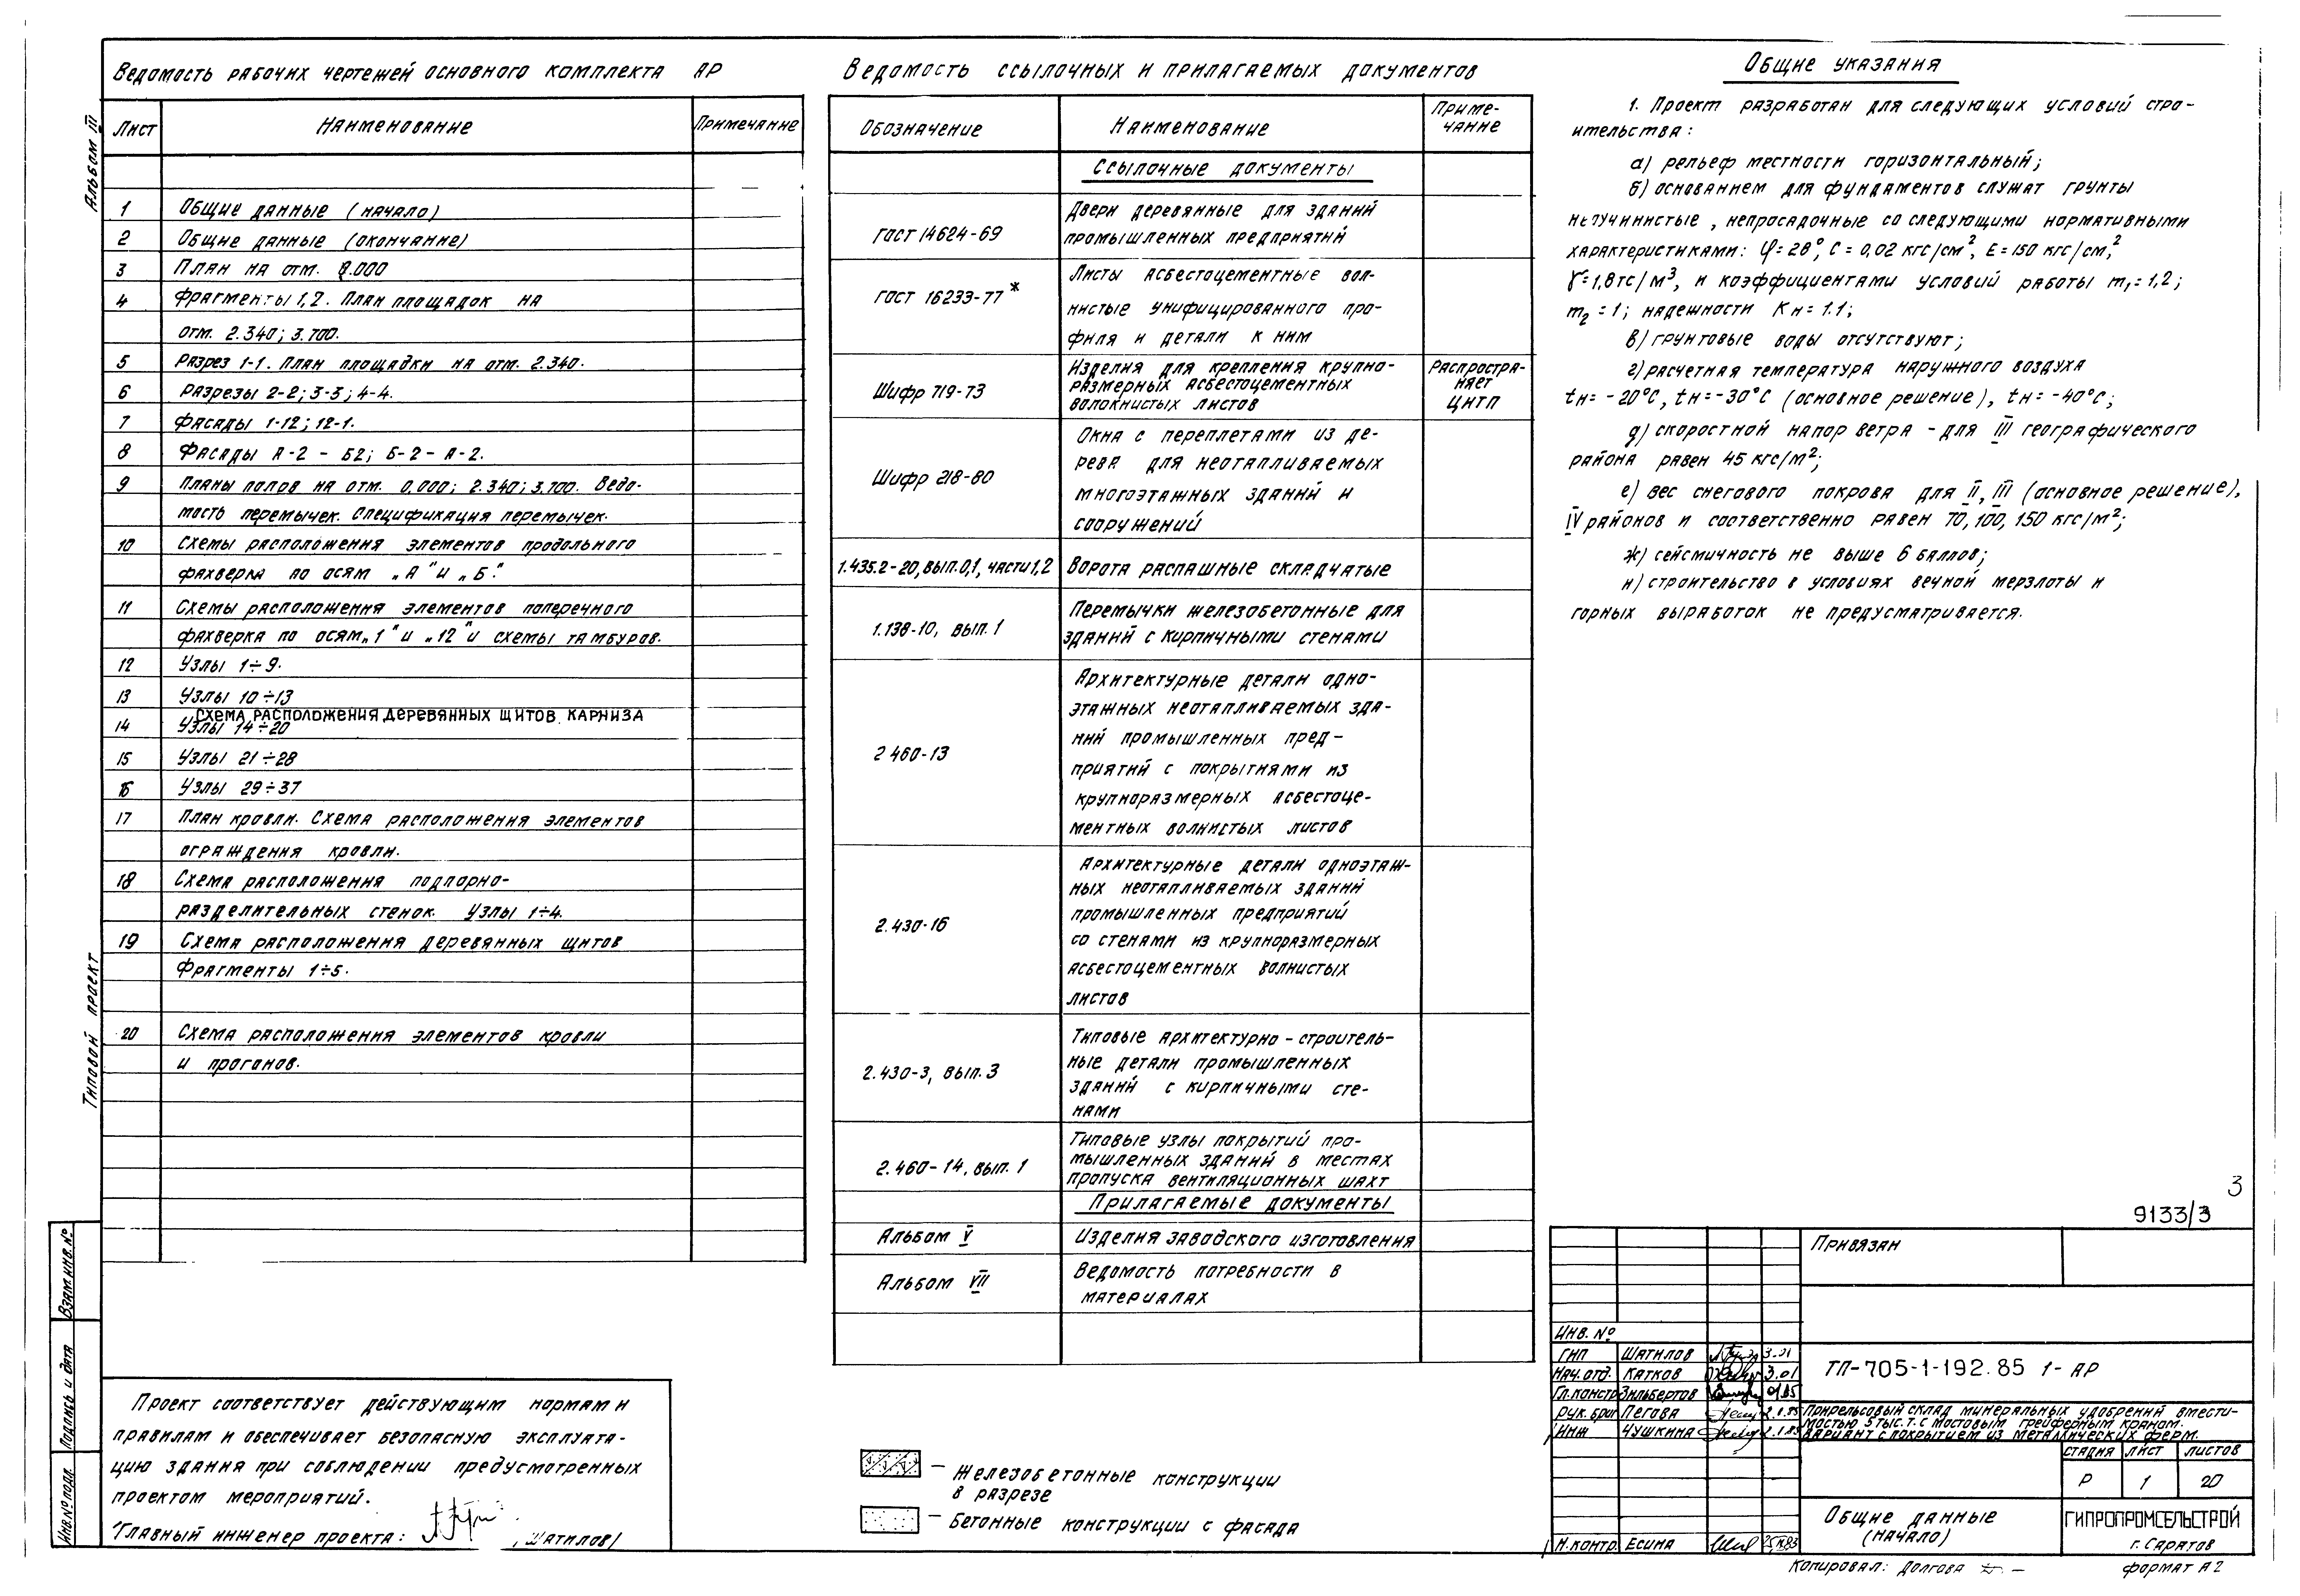 Альбом III
Типовой проект
Ведомость рабочих чертежей основного комплекта АР
Лист Наименование Примечание
1 Общие данные (начало)
2 Общие данные (окончание)
3 План на отм. 0.000
4 Фрагменты 1,2. План площадок на
отм. 2.340; 3.700.
5 Разрез 1-1. План площадки на отм. 2.340.
6 Разрезы 2-2; 3-3; 4-4.
7 Фасады 1-12; 12-1.
8 Фасады А-2 - Б2; Б-2 - А-2.
9 Планы полов на отм. 0,000; 2.340; 3.700. Ведо-
мость перемычек. Спецификация перемычек.
10 Схемы расположения элементов продольного
фахверка по осям „А" и „Б".
11 Схемы расположения элементов поперечного
фахверка по осям „1" и „12" и схемы тамбуров.
12 Узлы 1÷9.
13 Узлы 10÷13
Схема расположения деревянных щитов карниза
14 Узлы 14÷20
15 Узлы 21÷28
16 Узлы 29÷37
17 План кровли. Схема расположения элементов
ограждения кровли.
18 Схема расположения подпорно-
разделительных стенок. Узлы 1÷4.
19 Схема расположения деревянных щитов
Фрагменты 1÷5.
20 Схема расположения элементов кровли
и прогонов.
Ведомость ссылочных и прилагаемых документов
Обозначение Наименование Приме-
чание
Ссылочные документы
Двери деревянные для зданий
ГОСТ 14624-69 промышленных предприятий
Листы асбестоцементные вол-
ГОСТ 16233-77*
нистые унифицированного про-
филя и детали к ним
Изделия для крепления крупно- Распростра-
Шифр 719-73 размерных асбестоцементных няет
волокнистых листов ЦИТП
Окна с переплетами из де-
Шифр 218-80 рева для неотапливаемых
многоэтажных зданий и
сооружений
1.435.2-20, вып.0,1, части 1,2 Ворота распашные складчатые
Перемычки железобетонные для
1.138-10, вып.1 зданий с кирпичными стенами
Архитектурные детали одно-
этажных неотапливаемых зда-
ний промышленных пред-
2 460-13
приятий с покрытиями из
крупноразмерных асбестоце-
ментных волнистых листов
Архитектурные детали одноэтаж-
ных неотапливаемых зданий
промышленных предприятий
2.430-16
со стенами из крупноразмерных
асбестоцементных волнистых
листов
Типовые архитектурно-строитель-
ные детали промышленных
2.430-3, вып.3 зданий с кирпичными сте-
нами
Типовые узлы покрытий про-
2.460-14, вып. 1 мышленных зданий в местах
пропуска вентиляционных шахт
Прилагаемые документы
Альбом V Изделия заводского изготовления
Альбом VII Ведомость потребности в
материалах
Общие указания
1. Проект разработан для следующих условий стро-
ительства:
а) рельеф местности горизонтальный;
б) основанием для фундаментов служат грунты
непучинистые, непросадочные со следующими нормативными
характеристиками: φ=28°, С=0,02 кгс/см², Е=150 кгс/см²,
γ=1,8тс/м³, и коэффициентами условий работы m₁=1,2;
m₂=1; надежности Кн=1.1;
в) грунтовые воды отсутствуют;
г) расчетная температура наружного воздуха
tн=-20°С, tн=-30°С (основное решение), tн=-40°С;
д) скоростной напор ветра - для III географического
района равен 45 кгс/м²;
е) вес снегового покрова для II, III (основное решение),
IV районов и соответственно равен 70, 100, 150 кгс/м²;
ж) сейсмичность не выше 6 баллов;
и) строительство в условиях вечной мерзлоты и
горных выработок не предусматривается.
3
9133/3
Взам.инв.№
Подпись и дата
Инв.№ подл.
Проект соответствует действующим нормам и
правилам и обеспечивает безопасную эксплуата-
цию здания при соблюдении предусмотренных
проектом мероприятий.
Главный инженер проекта: /Шатилов/
Железобетонные конструкции
в разрезе
Бетонные конструкции с фасада
Привязан
Инв. №
ГИП Шатилов 3.01
Нач.отд. Катков 3.01
Гл.констр Зильбертов 01.85
Рук. бриг Пегова 2.1.85
Инж Чушкина 2.1.85
Н.контр. Есина
ТП-705-1-192.85 1-АР
Прирельсовый склад минеральных удобрений вмести-
мостью 5 тыс.т. с мостовым грейферным краном.
Вариант с покрытием из металлических ферм.
Стадия Лист Листов
Р 1 20
Общие данные
(начало)
ГИПРОПРОМСЕЛЬСТРОЙ
г. Саратов
Копировал: Долгова
Формат А2